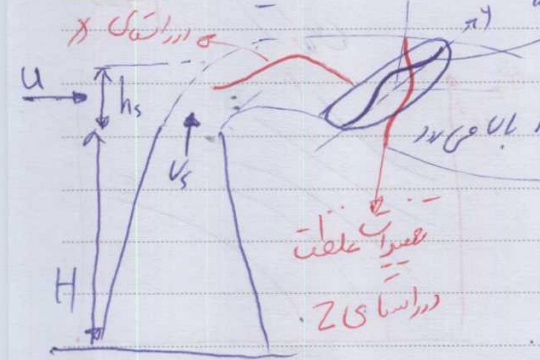 در راستای x
u
hs
Vs
H
با u می رود
تغییرات غلظت
در راستای Z